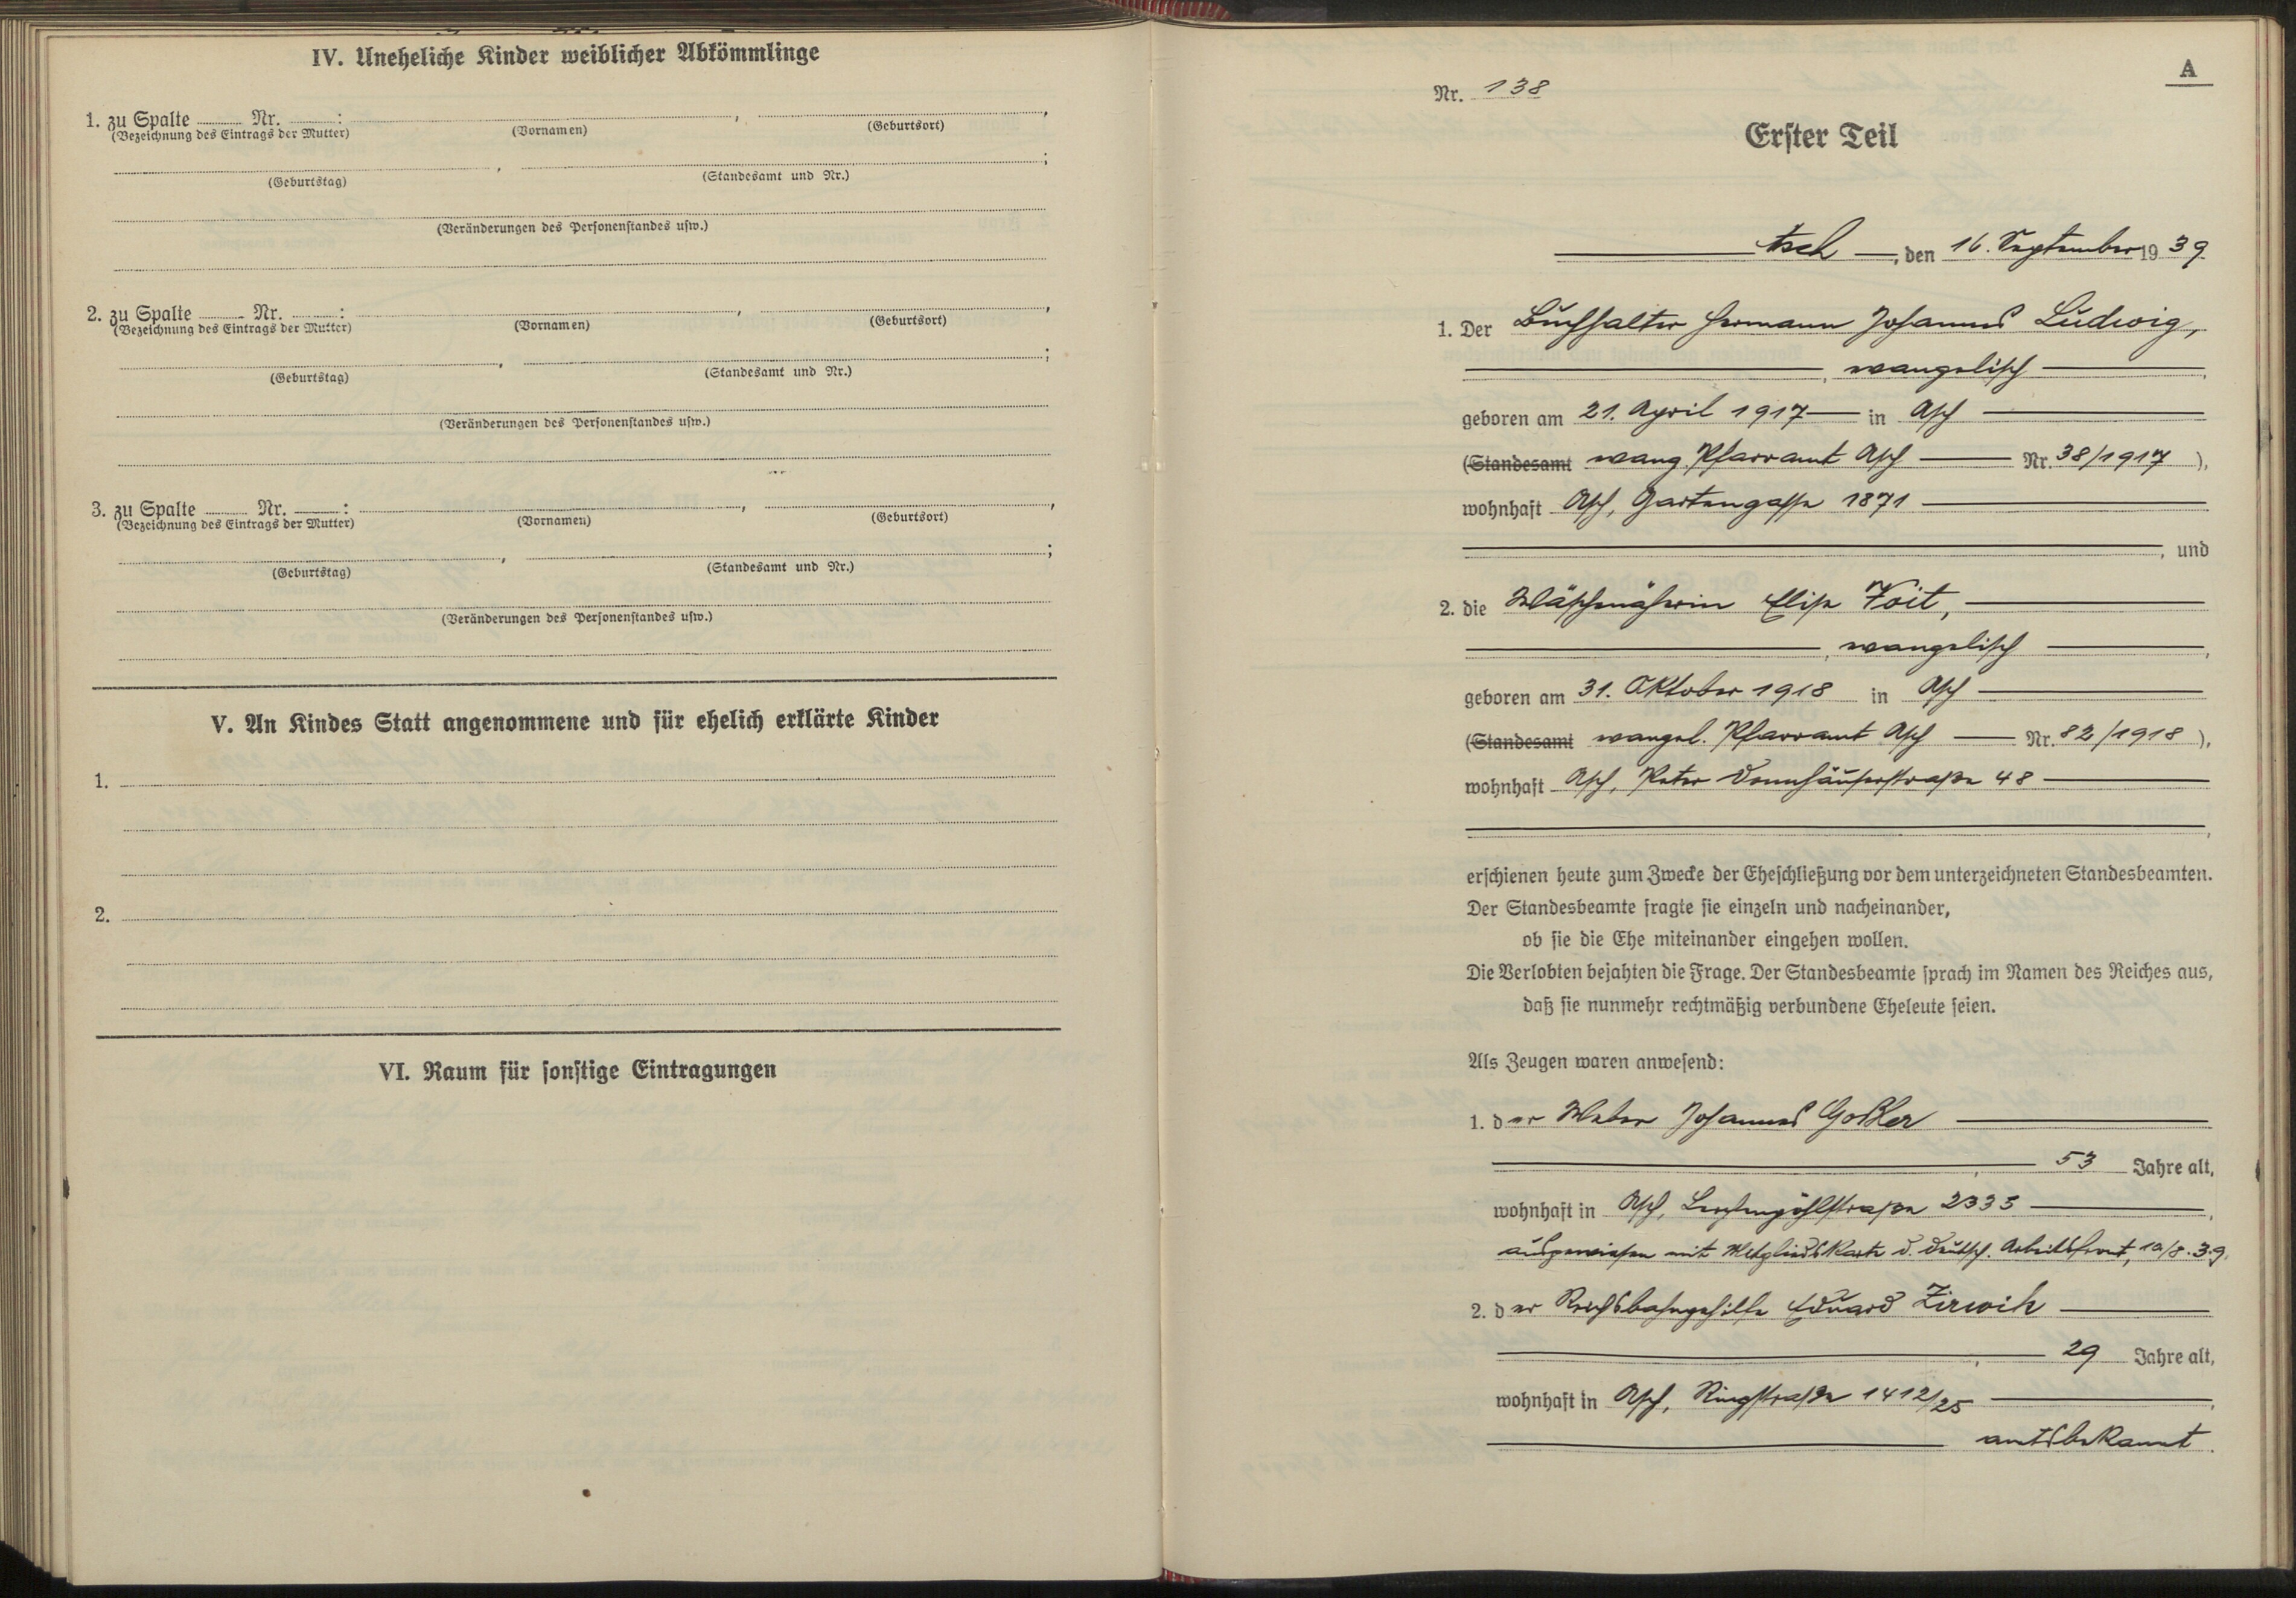 IV. Uneheliche Kinder weiblicher Abkömmlinge
1. zu Spalte ........ Nr. ........ :
(Bezeichnung des Eintrags der Mutter) (Vornamen) (Geburtsort)
(Geburtstag) (Standesamt und Nr.)
(Veränderungen des Personenstandes usw.)
2. zu Spalte ........ Nr. ........ :
(Bezeichnung des Eintrags der Mutter) (Vornamen) (Geburtsort)
(Geburtstag) (Standesamt und Nr.)
(Veränderungen des Personenstandes usw.)
3. zu Spalte ........ Nr. ........ :
(Bezeichnung des Eintrags der Mutter) (Vornamen) (Geburtsort)
(Geburtstag) (Standesamt und Nr.)
(Veränderungen des Personenstandes usw.)
V. An Kindes Statt angenommene und für ehelich erklärte Kinder
1.
2.
VI. Raum für sonstige Eintragungen
A
Nr. 138
Erster Teil
Asch, den 16. September 1939
1. Der Buchhalter Hermann Johannes Ludwig,
, evangelisch ,
geboren am 21. April 1917 in Asch
(Standesamt evang. Pfarramt Asch Nr. 38/1917 ),
wohnhaft Asch, Gartengasse 1871
, und
2. die Wäschenäherin Elise Voit,
, evangelisch ,
geboren am 31. Oktober 1918 in Asch
(Standesamt evangel. Pfarramt Asch Nr. 82/1918 ),
wohnhaft Asch, Peter Donnhäuserstraße 48
,
erschienen heute zum Zwecke der Eheschließung vor dem unterzeichneten Standesbeamten.
Der Standesbeamte fragte sie einzeln und nacheinander,
ob sie die Ehe miteinander eingehen wollen.
Die Verlobten bejahten die Frage. Der Standesbeamte sprach im Namen des Reiches aus,
daß sie nunmehr rechtmäßig verbundene Eheleute seien.
Als Zeugen waren anwesend:
1. der Weber Johannes Goßler
, 53 Jahre alt,
wohnhaft in Asch, Lerchenpöhlstraße 2335 ,
ausgewiesen mit Mitgliedskarte d. deutsch. Arbeitsfront, 10/8.39.
2. der Reichsbahngehilfe Eduard Zirwick
, 29 Jahre alt,
wohnhaft in Asch, Ringstraße 1412/25 ,
amtsbekannt.